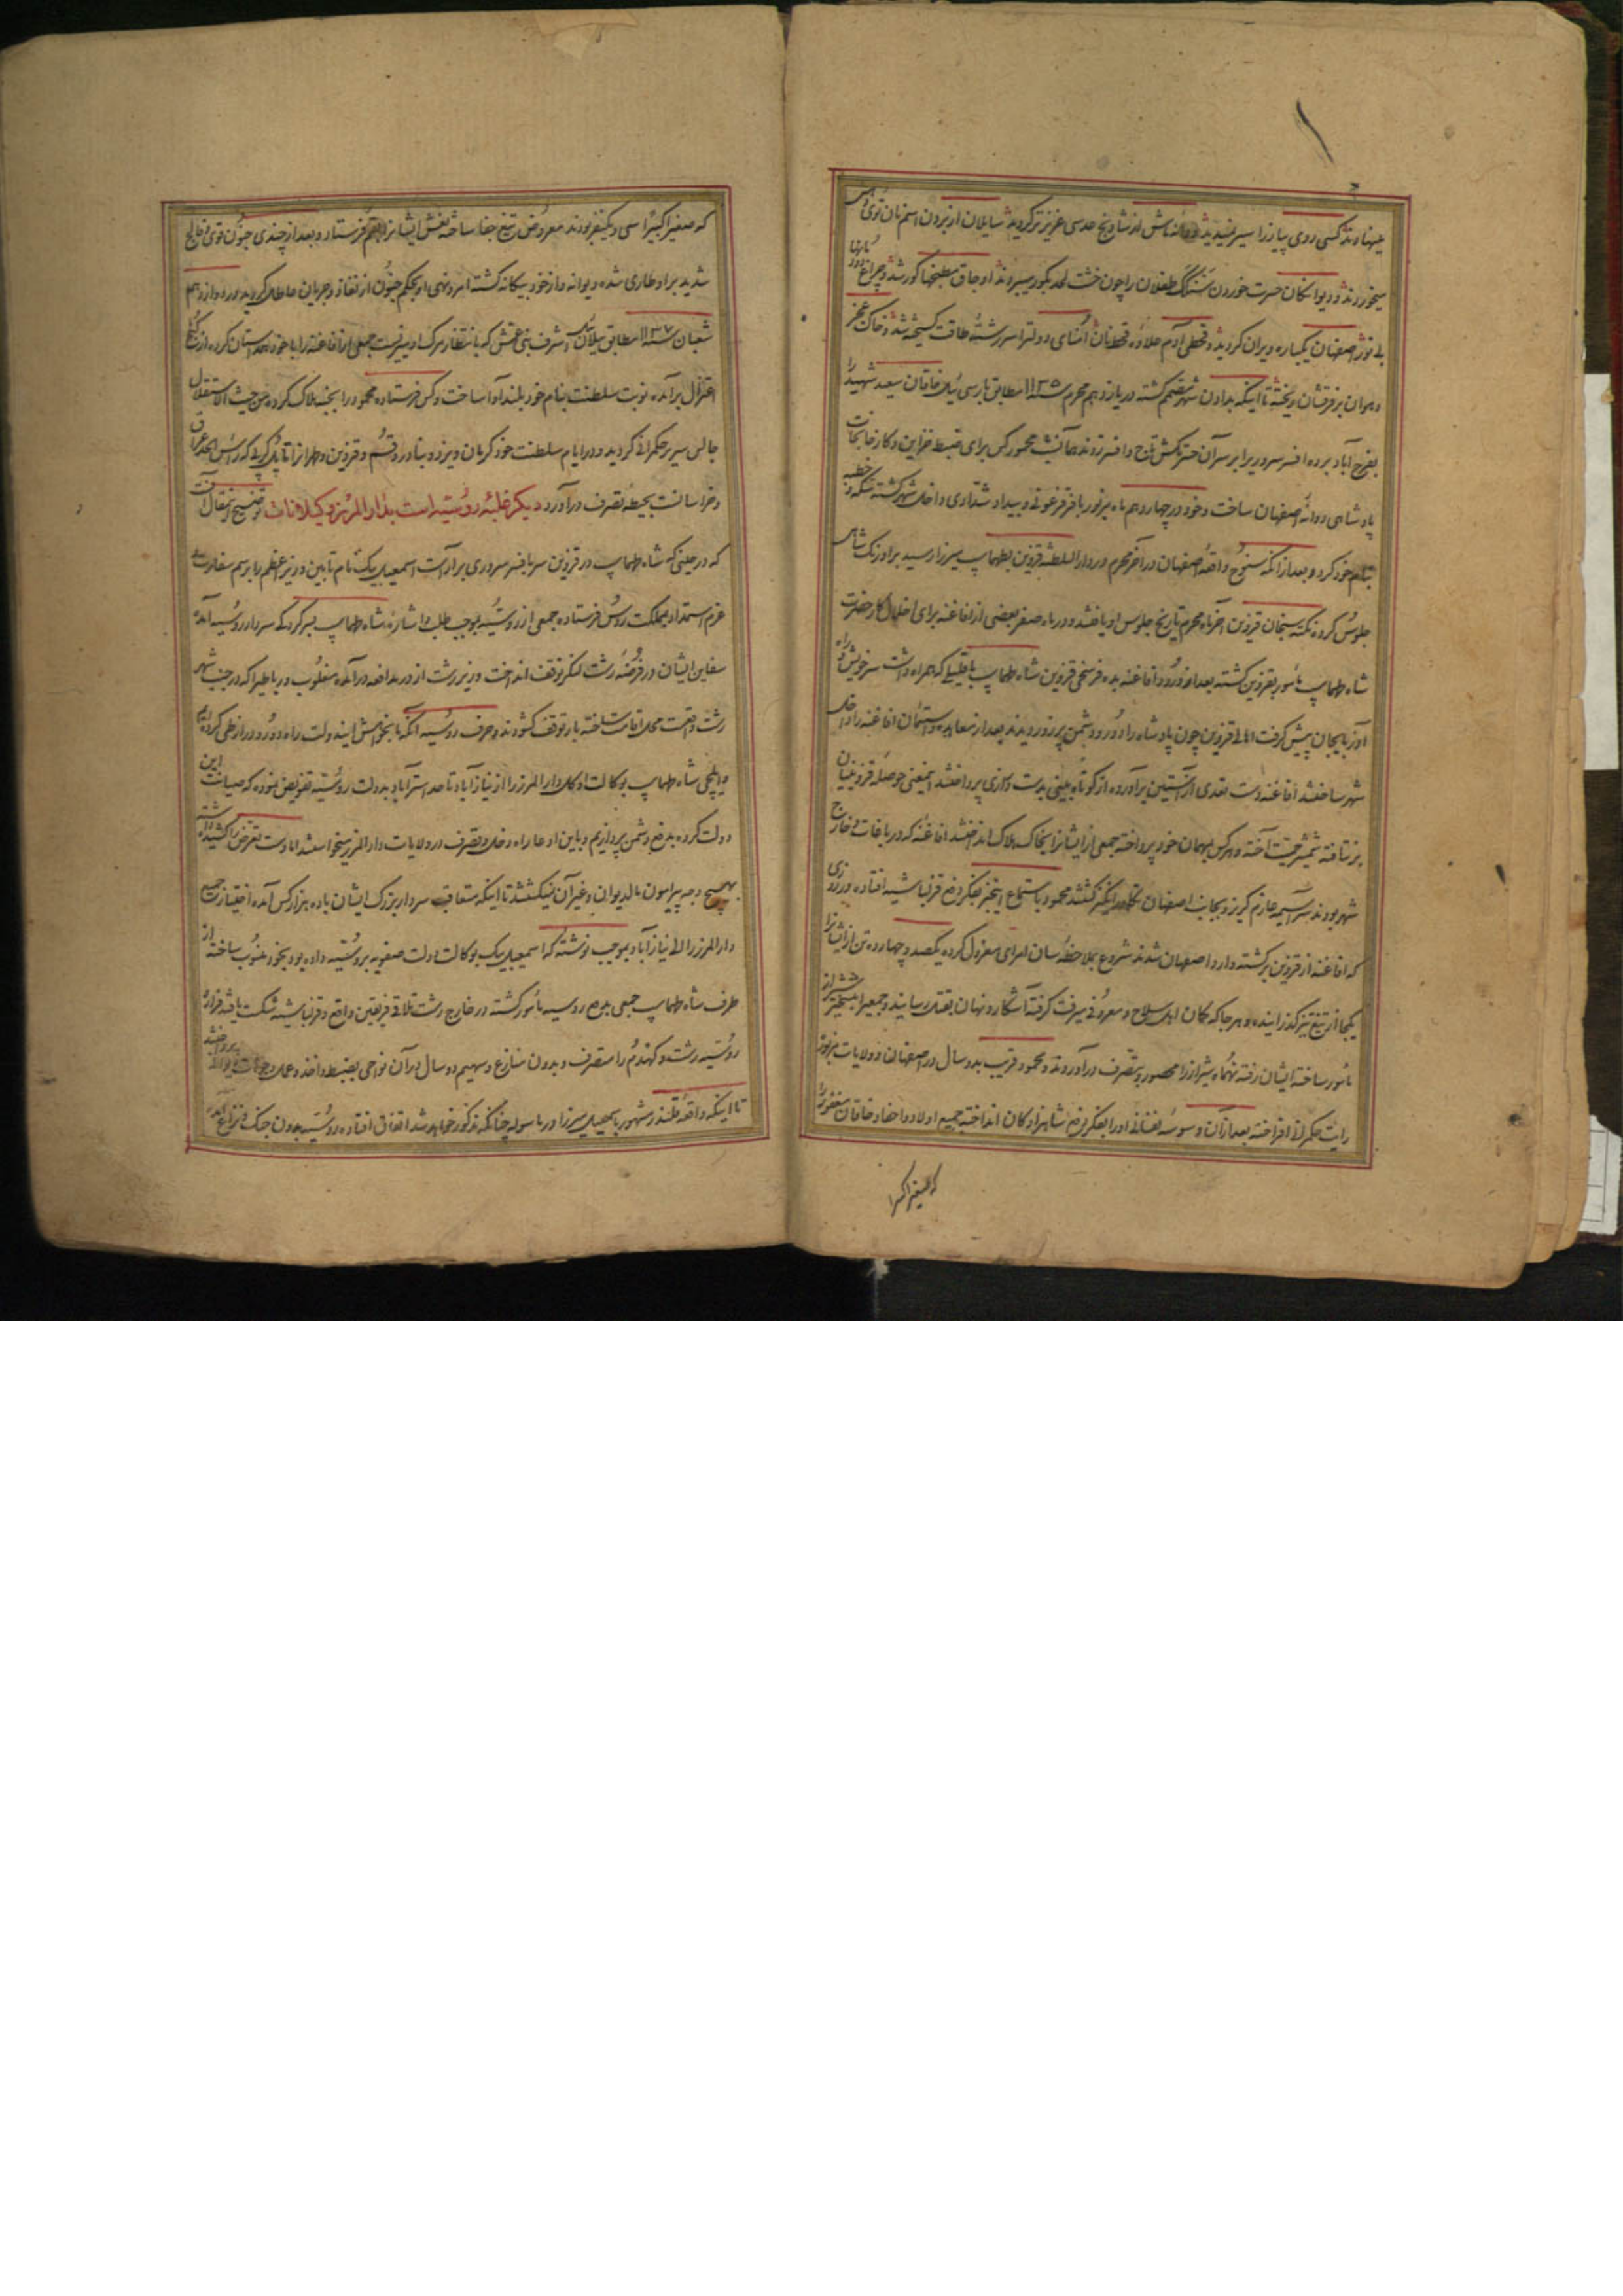 مینهادند کسی روی پیاز را سیر ندیدند و دانه ماش از شاخ
میخوردند و دیوانگان حسرت خوردن سنگ طفلان را چون خشت لحد بگور میبردند اوجاق مطبخها کور شد و چراغ
بی نور اصفهان یکباره ویران گردید و قحطی آدم علاوه قحط نان امنای دولترا سررشته طاقت گسیخته شد و خاک عجز
و هوان بر فرقشان ریخته تا اینکه بدادن شهر مصمم گشته در یازدهم محرم سنه ۱۱۳۵ مطابق بارس ئیل خاقان سعید شهید را
بفرح آباد برده افسر سروری را بر سر آن خسرکش تاج و افسر زدند همان شب محمود کس برای ضبط خزاین و کارخانجات
پادشاهی روانه اصفهان ساخت و خود در چهاردهم ماه مزبور با فر فرعونی و بیداد شدادی داخل شهر گشته سکه و خطبه
بنام خود کرد و بعد از آنکه سنوح واقعه اصفهان در آخر محرم در دار السلطنه قزوین بطهماسب میرزا رسید بر اورنگ شاهی
جلوس کرده نکته سنجان قزوین آخر ماه محرم تاریخ جلوس او یافتند و در ماه صفر بعضی از افاغنه برای اخلال کار حضرت
شاه طهماسب مأمور بقزوین گشته بعد از ورود افاغنه بده فرسخی قزوین شاه طهماسب با قلیلی که همراه داشت سر خویش و راه
آذربایجان پیش گرفت اهالی قزوین چون پادشاه را دور و دشمن پر زور دیدند بعد از معاهده و استیمان افاغنه را داخل
شهر ساختند افاغنه دست تعدی از آستین برآورده از کوته بینی بدست درازی پرداختند اینمعنی حوصله قزوینیان
بر نتافته شمشیر حمیت آخته و هر کس بمهمان خود پرداخته جمعی از ایشانرا بخاک هلاک انداختند افاغنه که در باغات خارج
شهر بودند سراسیمه عازم گریز و بجانب اصفهان تکاور انگیز گشتند محمود باستماع اینخبر بفکر دفع قزلباشیه افتاده در روزی
که افاغنه از قزوین برگشته وارد اصفهان شدند شروع بملاحظه سان امرای معزول کرده یکصد و چهارده تن از ایشانرا
یکجا از تیغ تیز گذرانیده و هر جا که گمان اهل سلاح و معروفی میرفت گرفته آشکار و نهان بقتل رسانید و جمعیرا بتسخیر شیراز
مأمور ساخته ایشان رفته نهماه شیراز را محصور و بتصرف درآوردند و محمود قریب بدو سال در اصفهان و ولایات مزبوره
رایت حکمرانی افراخته بعد از آن وسوسه نفسانی او را بفکر دفع شاهزادگان انداخته جمیع اولاد و احفاد خاقان مغفور را
که صغیراً کبیراً
که صغیراً کبیراً سی و یکنفر بودند معروض تیغ جفا ساخته نعش ایشانرا بقم فرستاد و بعد از چندی جنون قوی و فالج
شدید بر او طاری شده دیوانه و از خود بیگانه گشته امر و نهی او بحکم جنون از نفاذ و جریان عاطل گردید در دوازدهم
شعبان سنه ۱۱۳۷ مطابق ییلان ئیل اشرف بنی عمش که بانتظار مرگ او میزیست جمعی از افاغنه را با خود همداستان کرده از کنج
اعتزال برآمده نوبت سلطنت بنام خود بلند آوا ساخت و کس فرستاده محمود را بخبه هلاک کرده من حیث الاستقلال
جالس سریر حکمرانی گردید و در ایام سلطنت خود کرمان و یزد و بنادر و قم و قزوین و طهرانرا تا پل کرپی که رأس الحد عراق
و خراسانست بحیطه تصرف درآورد دیگر غلبه روسیه است بدار المرز و گیلانات توضیح این مقال آنست
که در حینی که شاه طهماسب در قزوین سر بافسر سروری برآراست اسمعیل بیک نام تابین وزیر اعظم را برسم سفارت
عزم استمداد بمملکت روس فرستاده جمعی از روسیه بموجب طلب و اشاره شاه طهماسب بسرکردگی سردار روسیه آمده
سفاین ایشان در فرضه رشت لنگر توقف انداخت وزیر رشت از در مدافعه درآمده مغلوب و در باطیرا که در جنب شهر
رشت واقعست محل اقامت ساخته بار توقف گشودند و حرف روسیه آنکه ما بخواهش ایندولت راه دور و دراز طی کرده‌ایم
و ایلچی شاه طهماسب بوکالت او کل دار المرز را از نیازآباد تا حد استرآباد بدولت روسیه تفویض نموده که صیانت این
دولت کرده بدفع دشمن پردازیم و باین ادعا راه دخل و تصرف در ولایات دار المرز میخواستند اما دست تعرض را کشیده داشته
بهیچ وجه پیرامون مال دیوان و غیر آن نمیگشتند تا اینکه متعاقب سردار بزرگ ایشان با ده هزار کس آمده اختیار جمیع
دار المرز را الی نیازآباد بموجب نوشته که اسمعیل بیک بوکالت دولت صفویه بروسیه داده بود بخود منسوب ساخته از
طرف شاه طهماسب جمعی بدفع روسیه مأمور گشته در خارج رشت تلاقی فریقین واقع و قزلباشیه شکست یافته فرار و
روسیه رشت و کهدم را متصرف و بدون منازع و سهیم ده سال در آن نواحی بضبط و اخذ و عمل پرداختند
تا اینکه واقعه قلندر مشهور باسمعیل میرزا در ماسوله چنانکه مذکور خواهد شد اتفاق افتاده روسیه بدون جنگ و نزاع